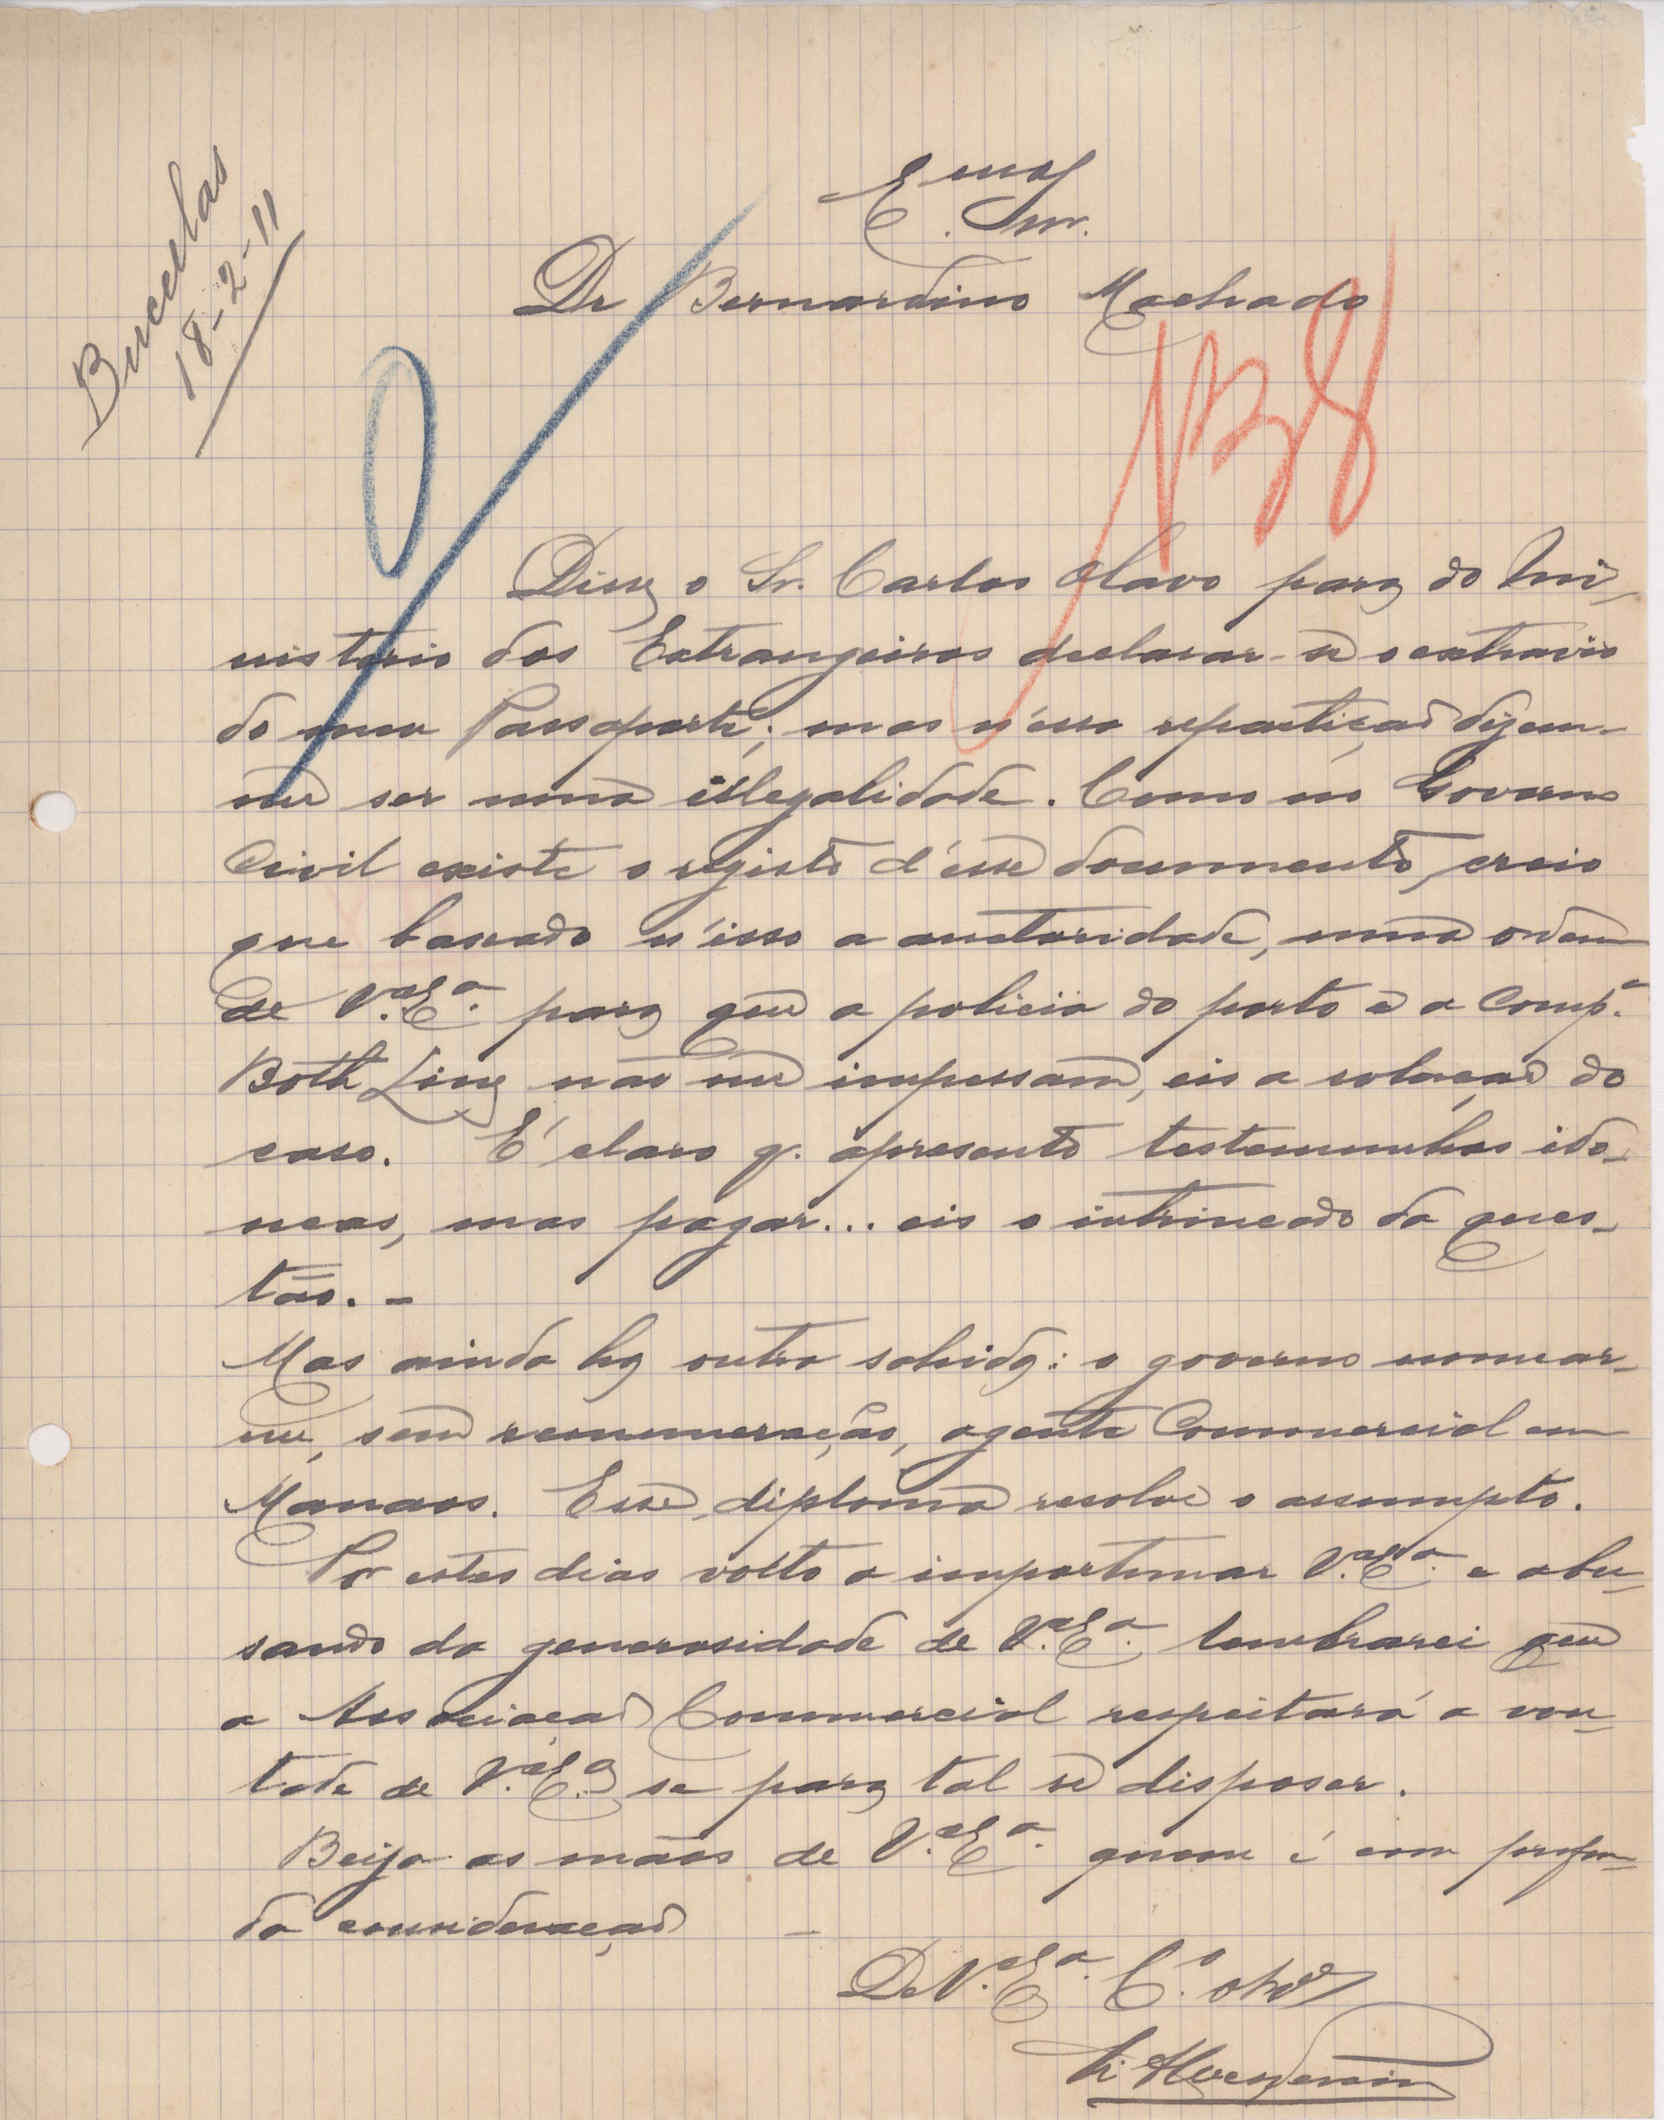 Bucelas
18-2-11
Exmo
Snr.
Dr Bernardino Machado
Disse o Sr. Carlos Olavo para do Mi-
nisterio dos Extrangeiros declarar-se o extravio
do meu Passaporte; mas n'essa repartiçaõ dizem-
me ser uma illegalidade. Como no Governo
Civil existe o registo d'esse documento, creio
que baseado n'isso a auctoridade, uma ordem
de V.ª Ex.ª para que a policia do porto e a Comp.ª
Both Line não me impessam, eis a soluçaõ do
caso. E' claro q. apresento testemunhas ido-
neas, mas pagar... eis o intrincado da ques-
tão. -
Mas ainda ha outra sahida: o governo nomear-
me, sem remuneração, agente Commercial em
Manaos. Esse diploma resolve o assumpto.
Por estes dias volto a importunar V.ª Ex.ª e abu-
sando da generosidade de V.ª Ex.ª lembrarei que
a Associaçaõ Commercial respeitará a von-
tade de V.ª Ex.ª se para tal se disposer.
Beijo as mãos de V.ª Ex.ª quem é com profun-
da consideraçaõ -
De V.ª Ex.ª C.º